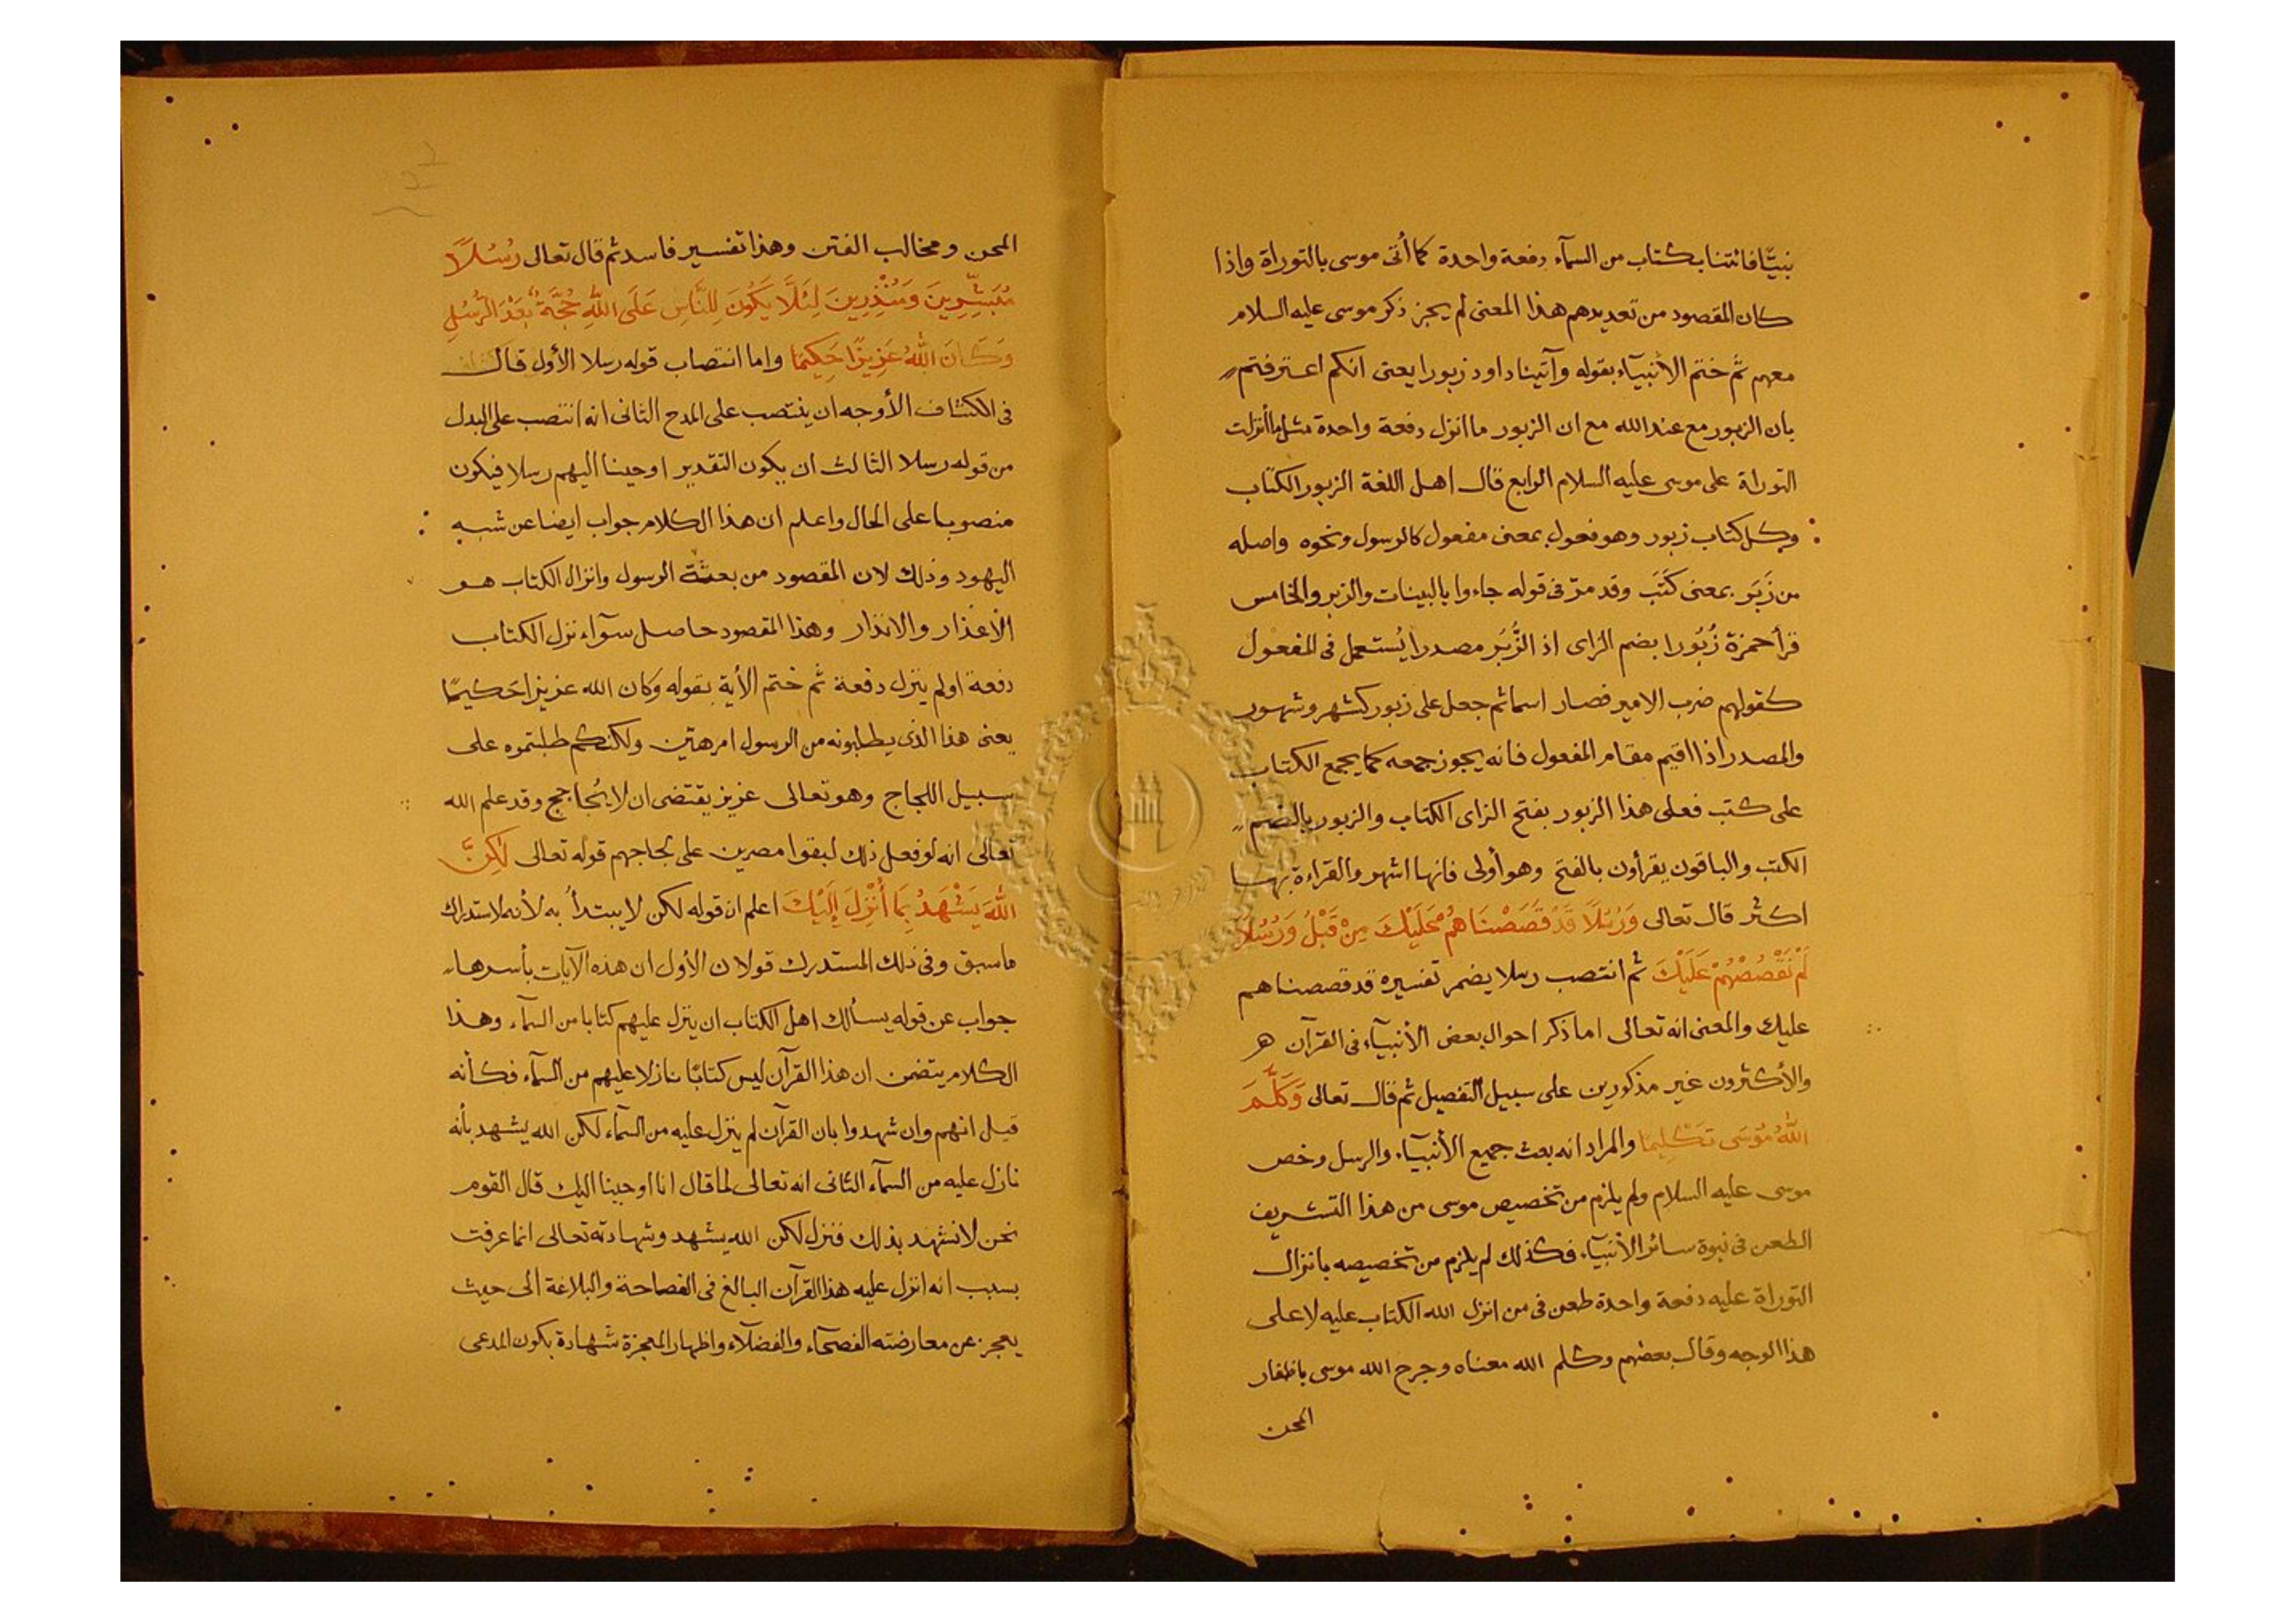 نبيّا فائتنا بكتاب من السمآء دفعة واحدة كما أتى موسى بالتوراة واذا
كان المقصود من تعديدهم هذا المعنى لم يجز ذكر موسى عليه السلام
معهم ثم ختم الأنبيآء بقوله وآتينا داود زبورا يعنى انكم اعترفتم
بان الزبور مع عند الله مع ان الزبور ما انزل دفعة واحدة مثل ما أنزلت
التوراة على موسى عليه السلام الرابع قال اهل اللغة الزبور الكتاب
وكل كتاب زبور وهو فعول بمعنى مفعول كالرسول ونحوه واصله
من زَبَرَ بمعنى كَتَبَ وقد مرّ فى قوله جاءوا بالبينات والزبر والخامس
قرأ حمزة زُبُورا بضم الزاى اذ الزُّبُر مصدرا يُستعمل فى المفعول
كقولهم ضرب الامير فصار اسما ثم جعل على زبور كشهر وشهور
والمصدر اذا اقيم مقام المفعول فانه يجوز جمعه كما يجمع الكتاب
على كتب فعلى هذا الزبور بفتح الزاى الكتاب والزبور بالضم
الكتب والباقون يقرأون بالفتح وهو أولى فانها اشهر والقراءة بها
اكثر قال تعالى وَرُسُلًا قَدْ قَصَصْنَاهُمْ عَلَيْكَ مِنْ قَبْلُ وَرُسُلًا
لَمْ نَقْصُصْهُمْ عَلَيْكَ ثم انتصب رسلا يضمر تفسيره قد قصصناهم
عليك والمعنى انه تعالى اما ذكر احوال بعض الأنبيآء فى القرآن
والأكثرون غير مذكورين على سبيل التفصيل ثم قال تعالى وَكَلَّمَ
اللهُ مُوسَى تَكْلِيمًا والمراد انه بعث جميع الأنبيآء والرسل وخص
موسى عليه السلام ولم يلزم من تخصيص موسى من هذا التشريف
الطعن فى نبوة سائر الأنبيآء فكذلك لم يلزم من تخصيصه بانزال
التوراة عليه دفعة واحدة طعن فى من انزل الله الكتاب عليه لا على
هذا الوجه وقال بعضهم وكلم الله معناه وجرح الله موسى باظفار
المحن
المحن ومخالب الفتن وهذا تفسير فاسد ثم قال تعالى رُسُلًا
مُبَشِّرِينَ وَمُنْذِرِينَ لِئَلَّا يَكُونَ لِلنَّاسِ عَلَى اللهِ حُجَّةٌ بَعْدَ الرُّسُلِ
وَكَانَ اللهُ عَزِيزًا حَكِيمًا واما انتصاب قوله رسلا الأول قال
فى الكشاف الأوجه ان ينتصب على المدح الثانى انه انتصب على البدل
من قوله رسلا الثالث ان يكون التقدير اوحينا اليهم رسلا فيكون
منصوبا على الحال واعلم ان هذا الكلام جواب ايضا عن شبه
اليهود وذلك لان المقصود من بعثة الرسول وانزال الكتاب هو
الأعذار والانذار وهذا المقصود حاصل سوآء نزل الكتاب
دفعة اولم ينزل دفعة ثم ختم الأية بقوله وكان الله عزيزا حكيمًا
يعنى هذا الذى يطلبونه من الرسول امر هين ولكنكم طلبتموه على
سبيل اللجاج وهو تعالى عزيز يقتضى ان لا يُحاجج وقد علم الله
تعالى انه لو فعل ذلك لبقوا مصرين على لجاجهم قوله تعالى لَكِنَّ
اللهَ يَشْهَدُ بِمَا أُنْزِلَ إِلَيْكَ اعلم ان قوله لكن لا يبتدأُ به لأنه لاستدراك
ما سبق وفى ذلك المستدرك قولان الأول ان هذه الآيات بأسرها
جواب عن قوله يسألك اهل الكتاب ان ينزل عليهم كتابا من السمآء وهذا
الكلام يتضمن ان هذا القرآن ليس كتابًا نازلا عليهم من السمآء فكأنه
قيل انهم وان شهدوا بان القرآن لم ينزل عليه من السمآء لكن الله يشهد بأنه
نازل عليه من السمآء الثانى انه تعالى لما قال انا اوحينا اليك قال القوم
نحن لا نشهد بذلك فنزل لكن الله يشهد وشهادته تعالى انما عرفت
بسبب انه انزل عليه هذا القرآن البالغ فى الفصاحة والبلاغة الى حيث
يعجز عن معارضته الفصحآء والفضلآء واظهار المعجزة شهادة بكون المدعى